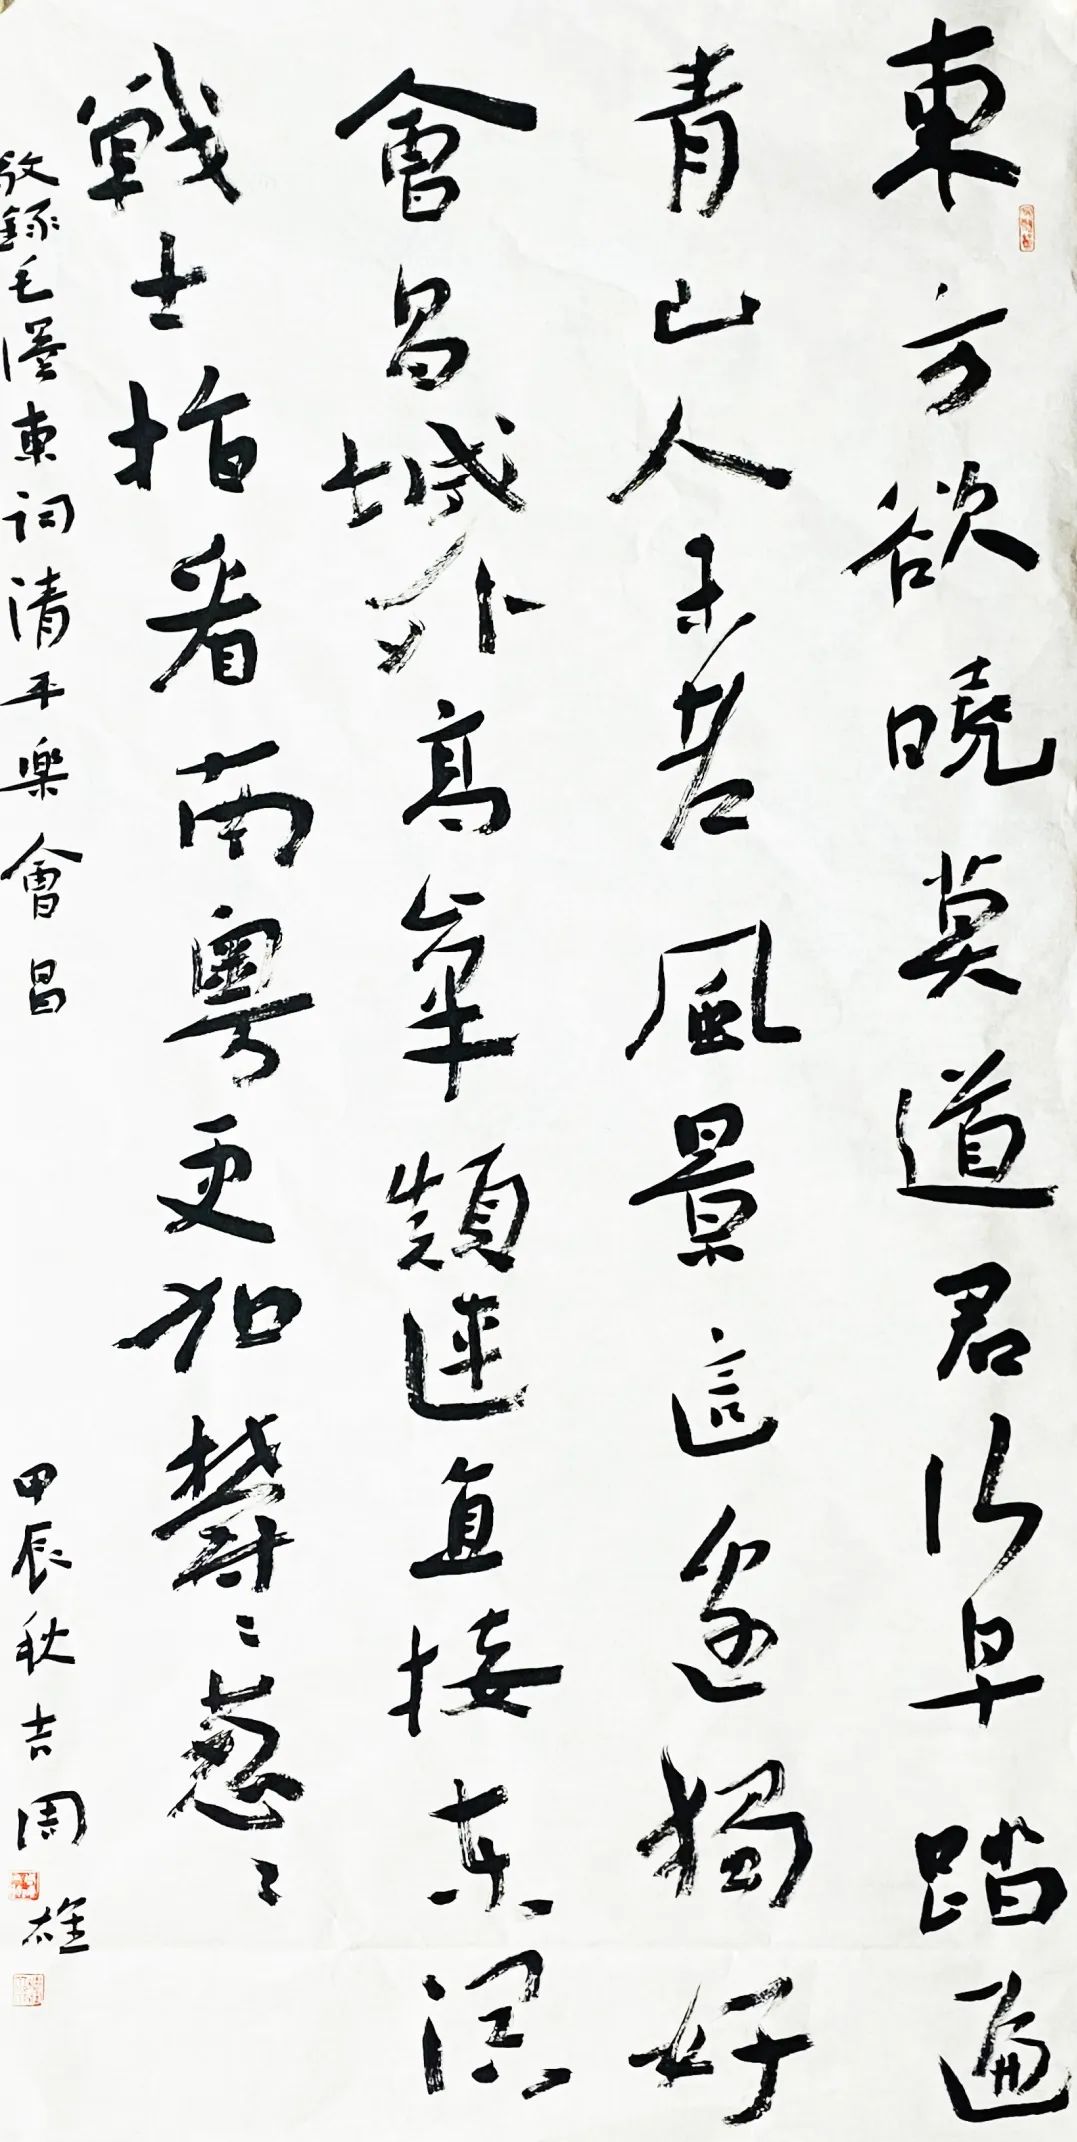 東方欲曉莫道君行早踏遍
青山人未老風景這邊獨好
會昌城外高峯顛連直接东溟
戰士指看南粵更加鬱〻葱〻
敬錄毛澤東詞清平樂會昌
甲辰秋吉周雄